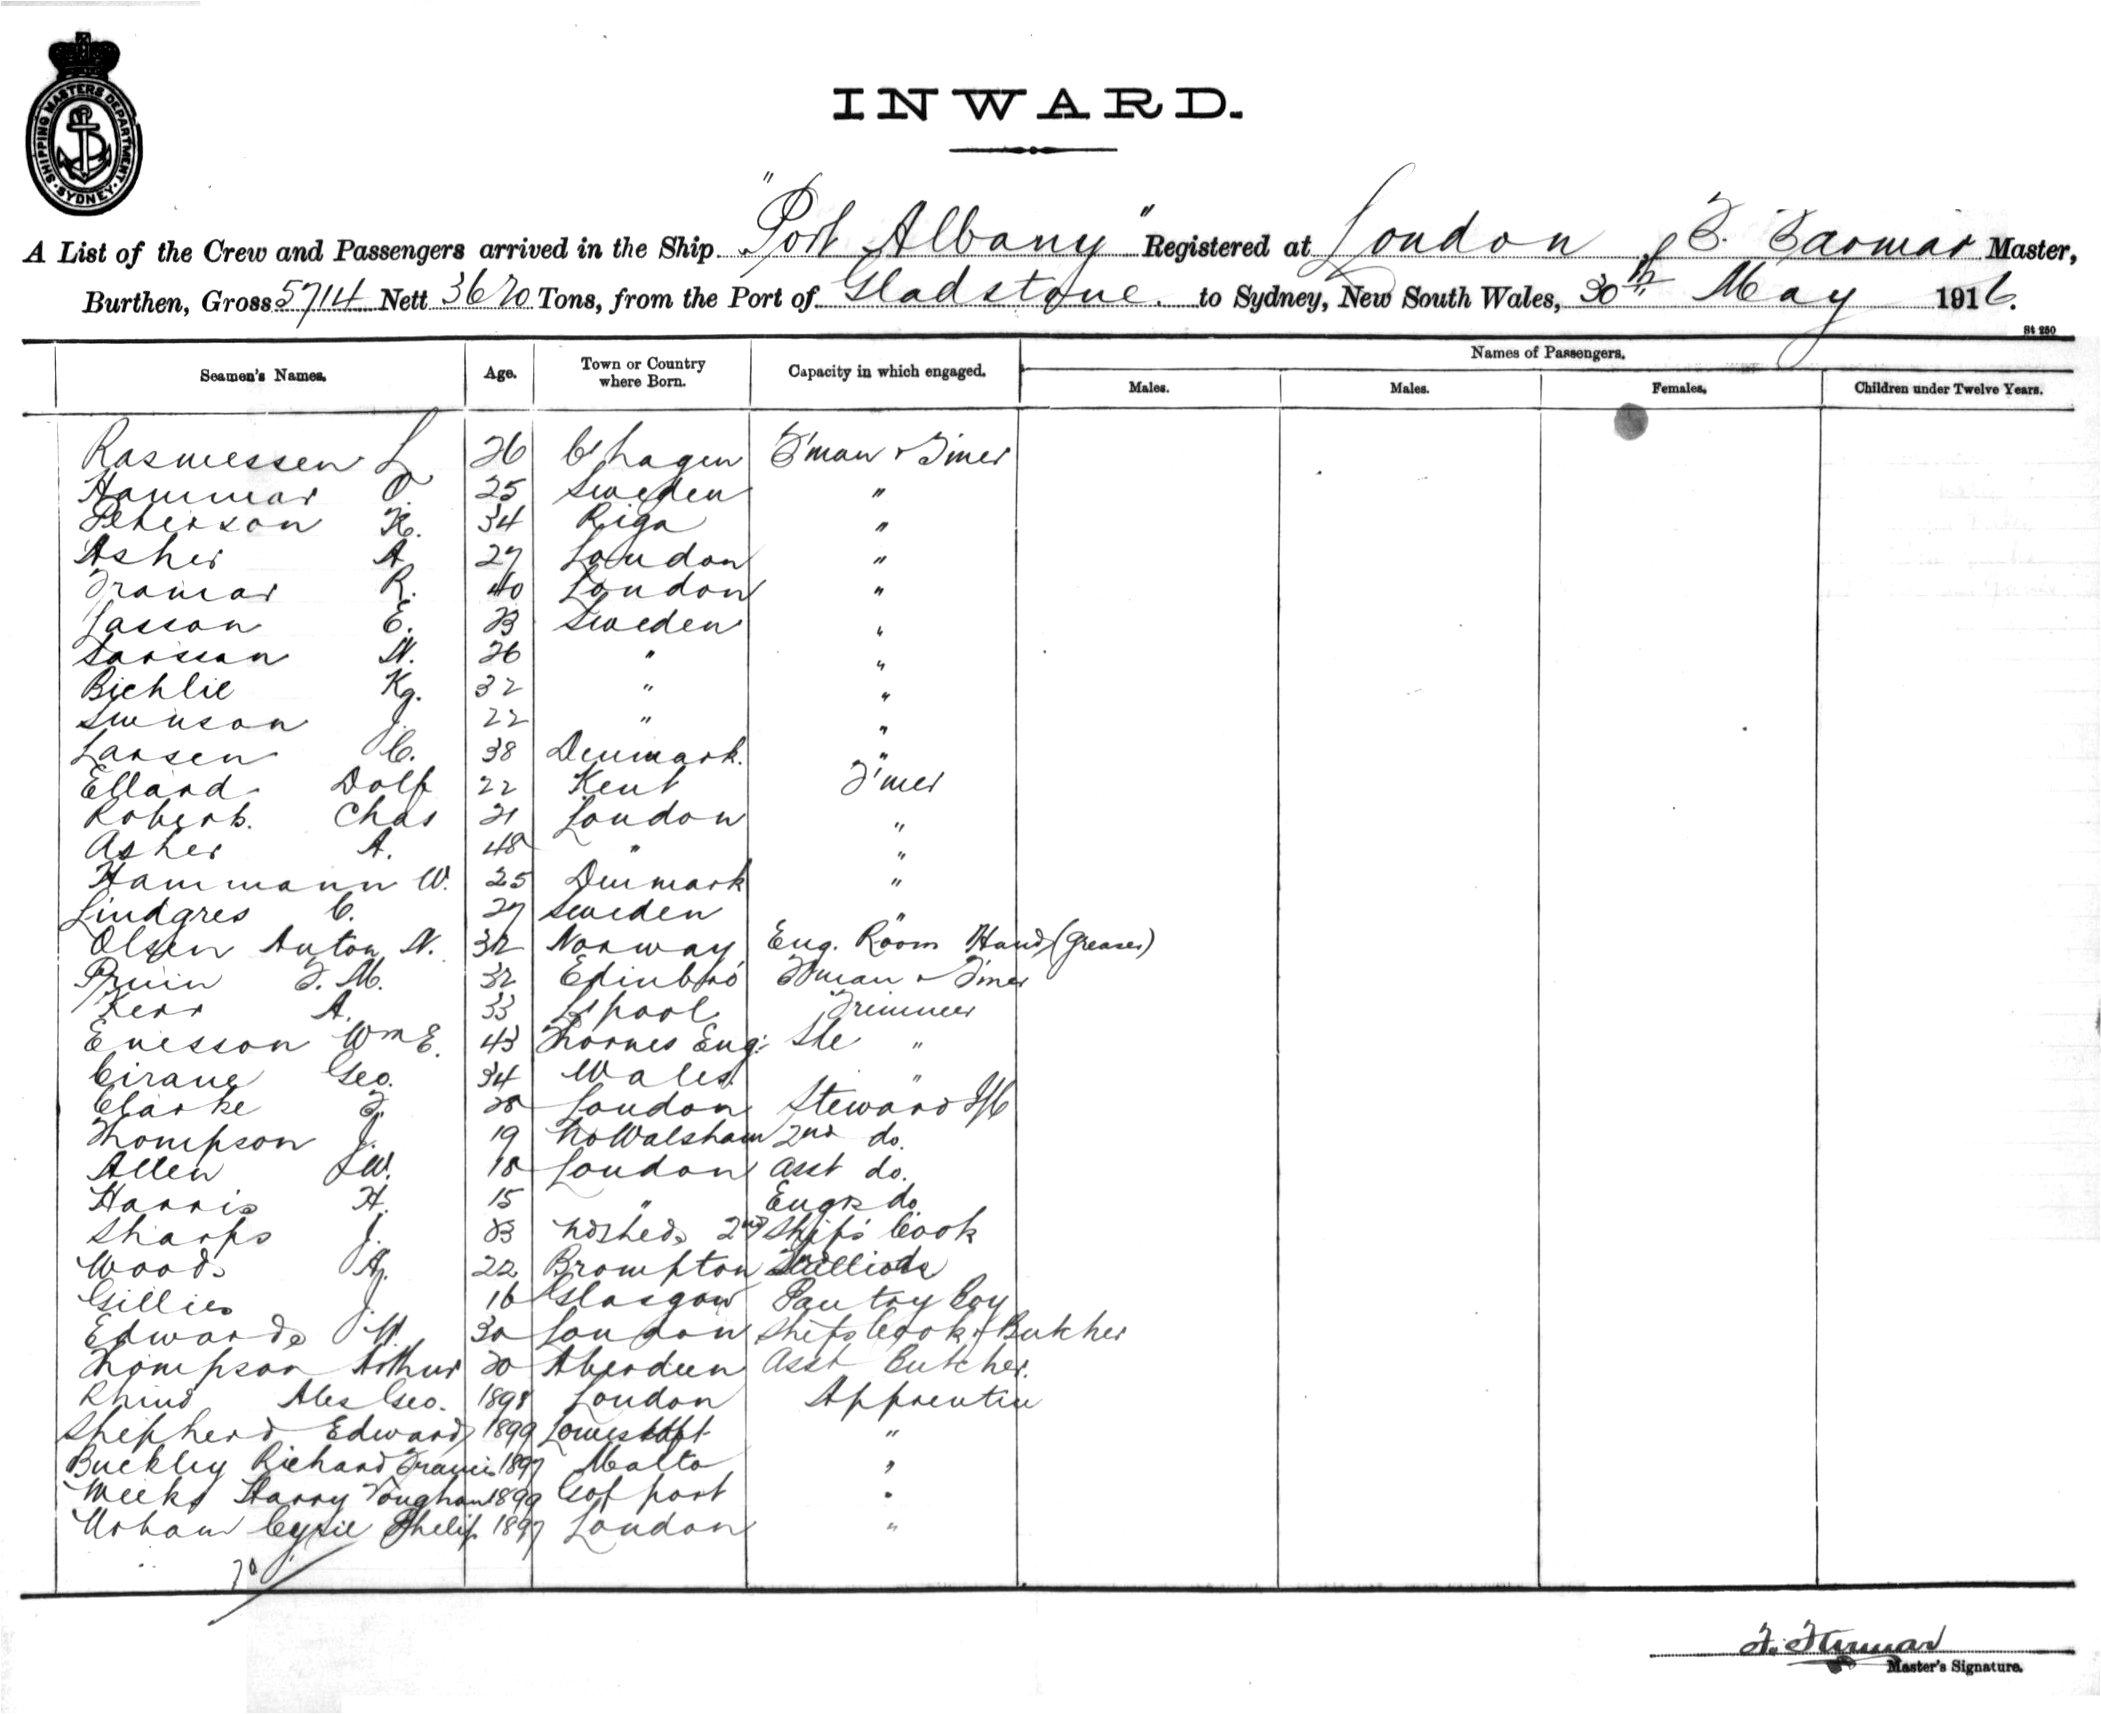 SHIPPING MASTERS DEPARTMENT · SYDNEY ·
INWARD.
A List of the Crew and Passengers arrived in the Ship "Port Albany" Registered at London, Master,
Burthen, Gross 5714 Nett 3670 Tons, from the Port of Gladstone. to Sydney, New South Wales, 30th May 1916.
St 250
Seamen's Names. Age. Town or Country where Born. Capacity in which engaged. Names of Passengers.
Males. Males. Females. Children under Twelve Years.
Rasmessen L 26 C'hagen F'man & T'mer
Hammar O. 25 Sweden "
Peterson K. 34 Riga "
Asher A 27 London "
R. 40 London "
Lasson E. 23 Sweden "
Larsson N. 26 " "
Kg. 32 " "
Swenson J. 22 " "
Larsen C. 38 Denmark. "
Ellard Dolf 22 Kent T'mer
Roberts. Chas 21 London "
Asher A. 48 " "
Hammann W. 25 Denmark "
Lindgres C. 27 Sweden "
Olsen Anton N. 32 Norway Eng. Room Hand (Greaser)
F. M. 32 Edinbro' F'man & T'mer
Kerr A. 33 L'pool Trimmer
Enesson Wm E. 43 Eng: "
Geo. 34 Wales. "
Clarke F. 28 London Steward
Thompson J. 19 No Walsham 2nd do.
Allen J W. 18 London Asst do.
Harris H. 15 " Engrs do.
Sharps J. 23 2nd Ship's Cook
Woods A. 22 Brompton
Gillies J. 16 Glasgow Pantry Boy
Edwards W. 30 London Ships Cook & Butcher
Thompson Arthur 20 Aberdeen Asst Butcher.
Rhind Alex Geo. 1898 London Apprentice
Shepherd Edward 1899 Lowestoft "
Buckley Richard Francis 1897 Malta "
Weeks Harry Vaughan 1899 Gosport "
Cyril Philip 1897 London "
70
Master's Signature.